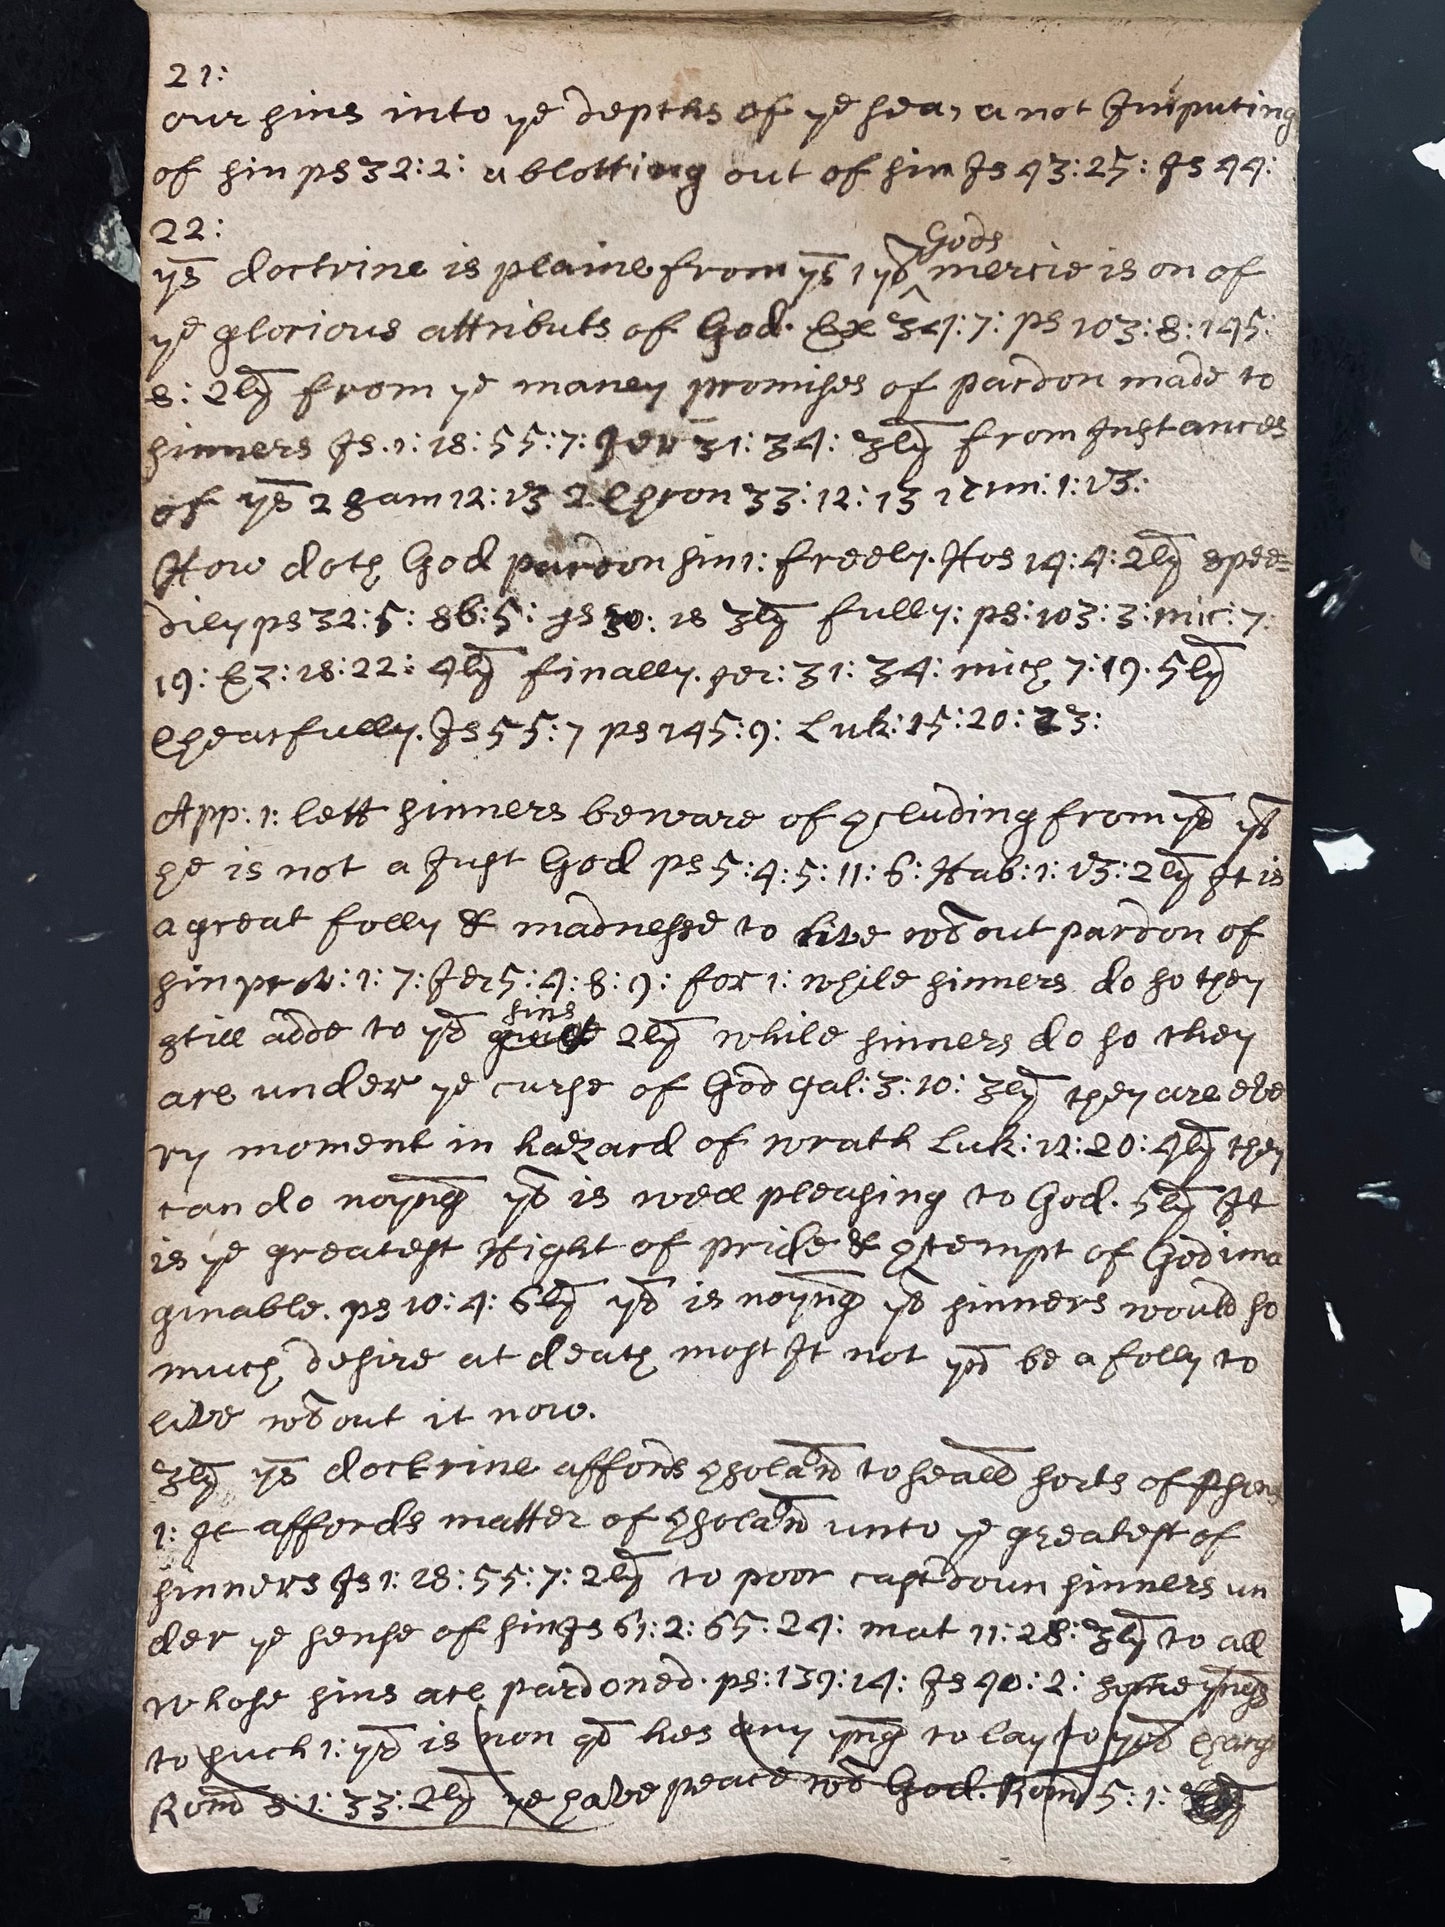 21:
our sins into ye depths of ye sea, a not Imputing
of sin ps 32:2: a blotting out of sin Is 43:25: Is 44:
22:
Gods
ys doctrine is plaine from ys 1 yt mercie is on of
ye glorious attributs of God. Ex 34:7: ps 103:8:145:
8: 2ly from ye maney promises of pardon made to
sinners Is.1:18:55:7: Jer 31:34: 3ly from Instances
of ys 2 Sam 12:13 2 Chron 33:12:13 1 tim:1:13:
How doth God pardon sin 1: freely. Hos 14:4: 2ly spee=
dily ps 32:5: 86:5: Is 30:18 3ly fully: ps:103:3: mic:7:
19: Ez:18:22: 4ly finally. Jer:31:34: mich 7:19. 5ly
Chearfully. Is 55:7 ps 145:9: Luk:15:20:23:
App:1: lett sinners beware of Concluding from yt yt
he is not a Just God ps 5:4:5:11:6: Hab:1:13: 2ly It is
a great folly & madnesse to live wtout pardon of
sin prov:1:7: Jer 5:4:8:9: for 1: while sinners do so they
sins
still adde to yr 2ly while sinners do so they
are under ye curse of God Gal:3:10: 3ly they are eve
ry moment in hazard of wrath Luk:12:20: 4ly they
can do noyng yt is well pleasing to God. 5ly It
is ye greatest Hight of pride & Contempt of God ima
ginable. ps 10:4: 6ly yr is noyng yt sinners would so
much desire at death most It not yn be a folly to
live wtout it now.
3ly ys doctrine affords Consolation to seall sorts of psons
1: It affords matter of Consolation unto ye greatest of
sinners Is 1:18:55:7: 2ly to poor cast doun sinners un
der ye sense of sin Is 61:2:65:24: mat 11:28: 3ly to all
whose sins are pardoned. ps:139:14: Is 40:2: some yngs
to such 1: yr is non yt hes any yng to lay to yr Charge
Rom 8:1:33: 2ly ye have peace wt God. Rom 5:1: